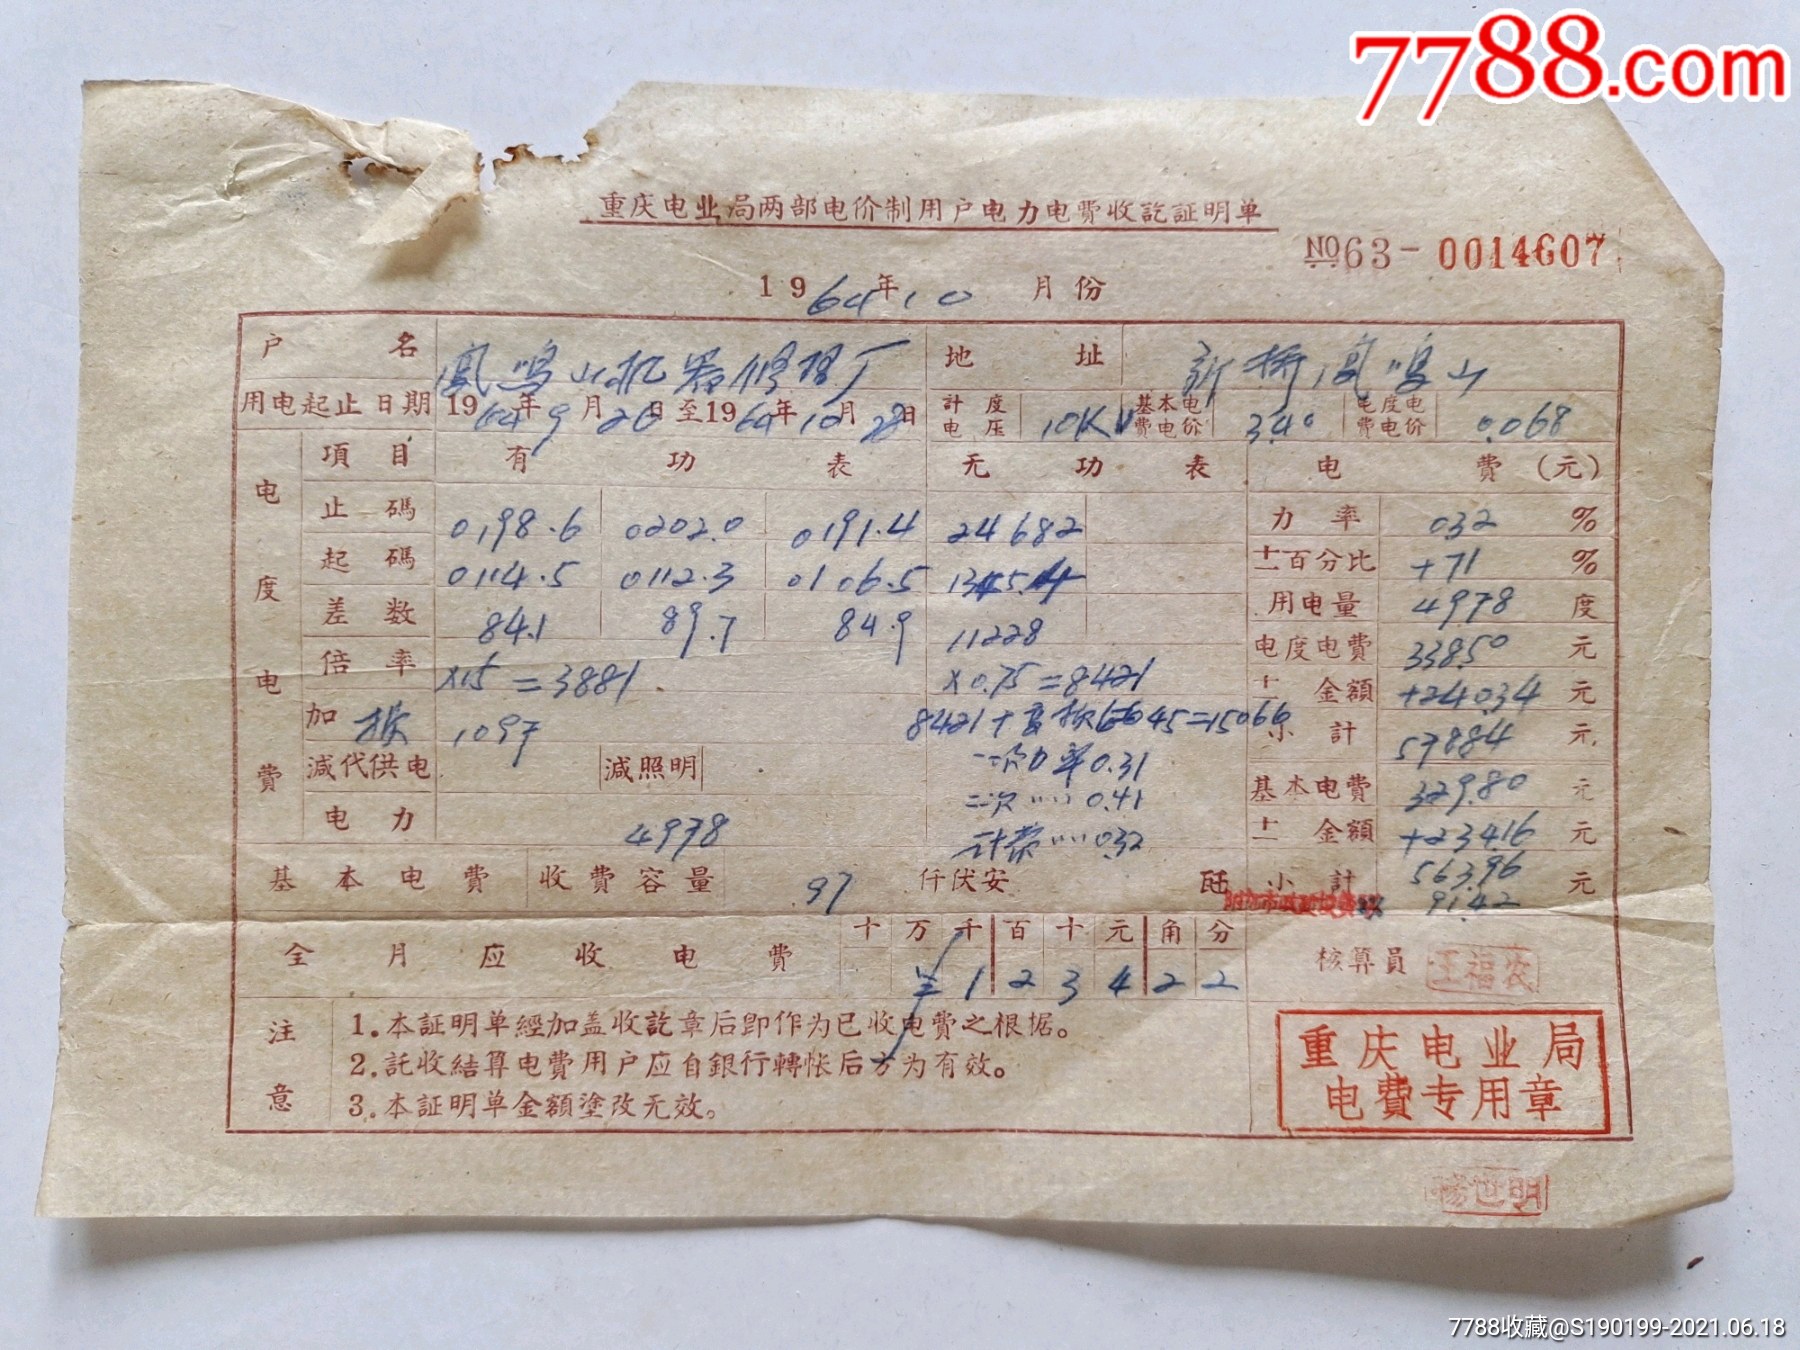 7788.com
重庆电业局两部电价制用户电力电費收訖証明单
№63-0014607
1964年10月份
户名 凤鸣山机器修理厂 地址 新桥凤鸣山
用电起止日期 1964年9月26日至1964年10月28日 計度电压 10KV 基本电費电价 3.40 电度电費电价 0.068
电度电費 項目 有功表 无功表 电費(元)
止碼 0198.6 0202.0 0191.4 24682 力率 032 %
起碼 0114.5 0112.3 0106.5 13454 ±百分比 +71 %
差数 84.1 89.7 84.9 11228 用电量 4978 度
倍率 ×15=3881 ×0.75=8421 电度电費 338.50 元
加 损 1097 8421+ 6645=15066 ± 金額 +240.34 元
小計 578.84 元
減代供电 減照明 一次力率0.31
二次〃〃 0.41 基本电費 329.80 元
电力 4978 计费〃〃 0.32 ± 金額 +234.16 元
基本电費 收費容量 97 仟伏安 小計 563.96 元
91.42
全月应收电費 十万千百十元角分 核算員 王福农
1 2 3 4 2 2
注意 1.本証明单經加盖收訖章后即作为已收电費之根据。
2.託收結算电費用户应自銀行轉帐后方为有效。
3.本証明单金額塗改无效。
重庆电业局
电費专用章
杨世明
7788收藏@S190199-2021.06.18